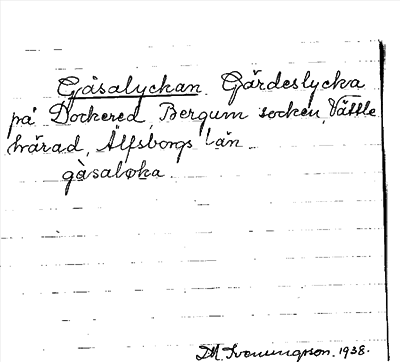 Gåsalyckan. Gärdeslycka
på Dockered, Bergum socken, Vättle
härad, Älfsborgs län
gåsaløka.
1938.